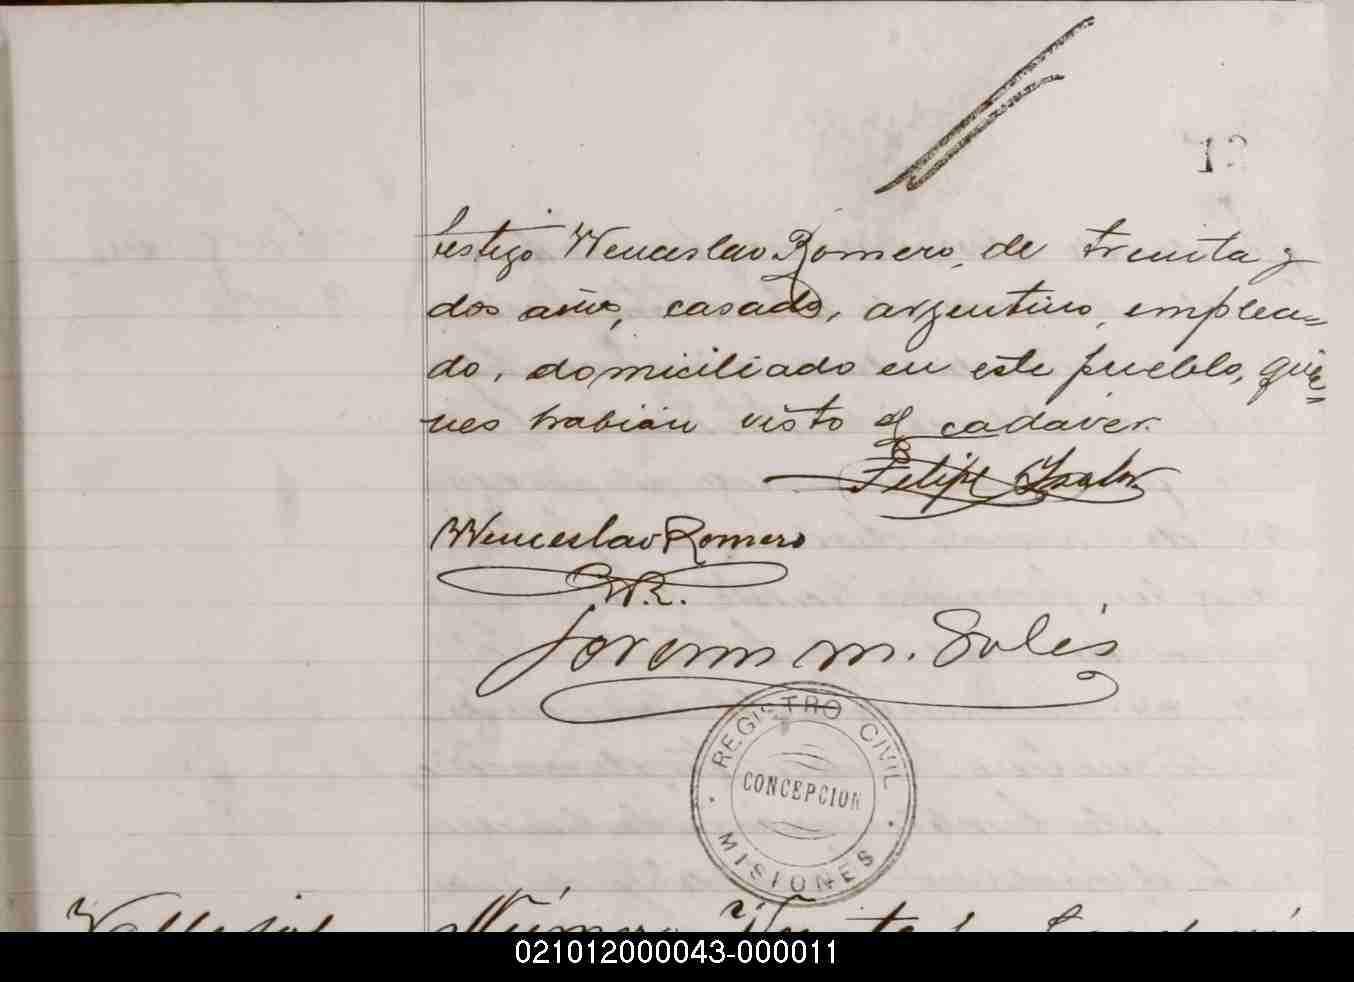 13
testigo Wenceslao Romero, de treinta y
dos años, casado, argentino, emplea=
do, domiciliado en este pueblo, quie=
nes habian visto el cadáver.
Felipe
Wenceslao Romero
W.R.
m. Solis
REGISTRO CIVIL
CONCEPCION
MISIONES
Número
021012000043-000011